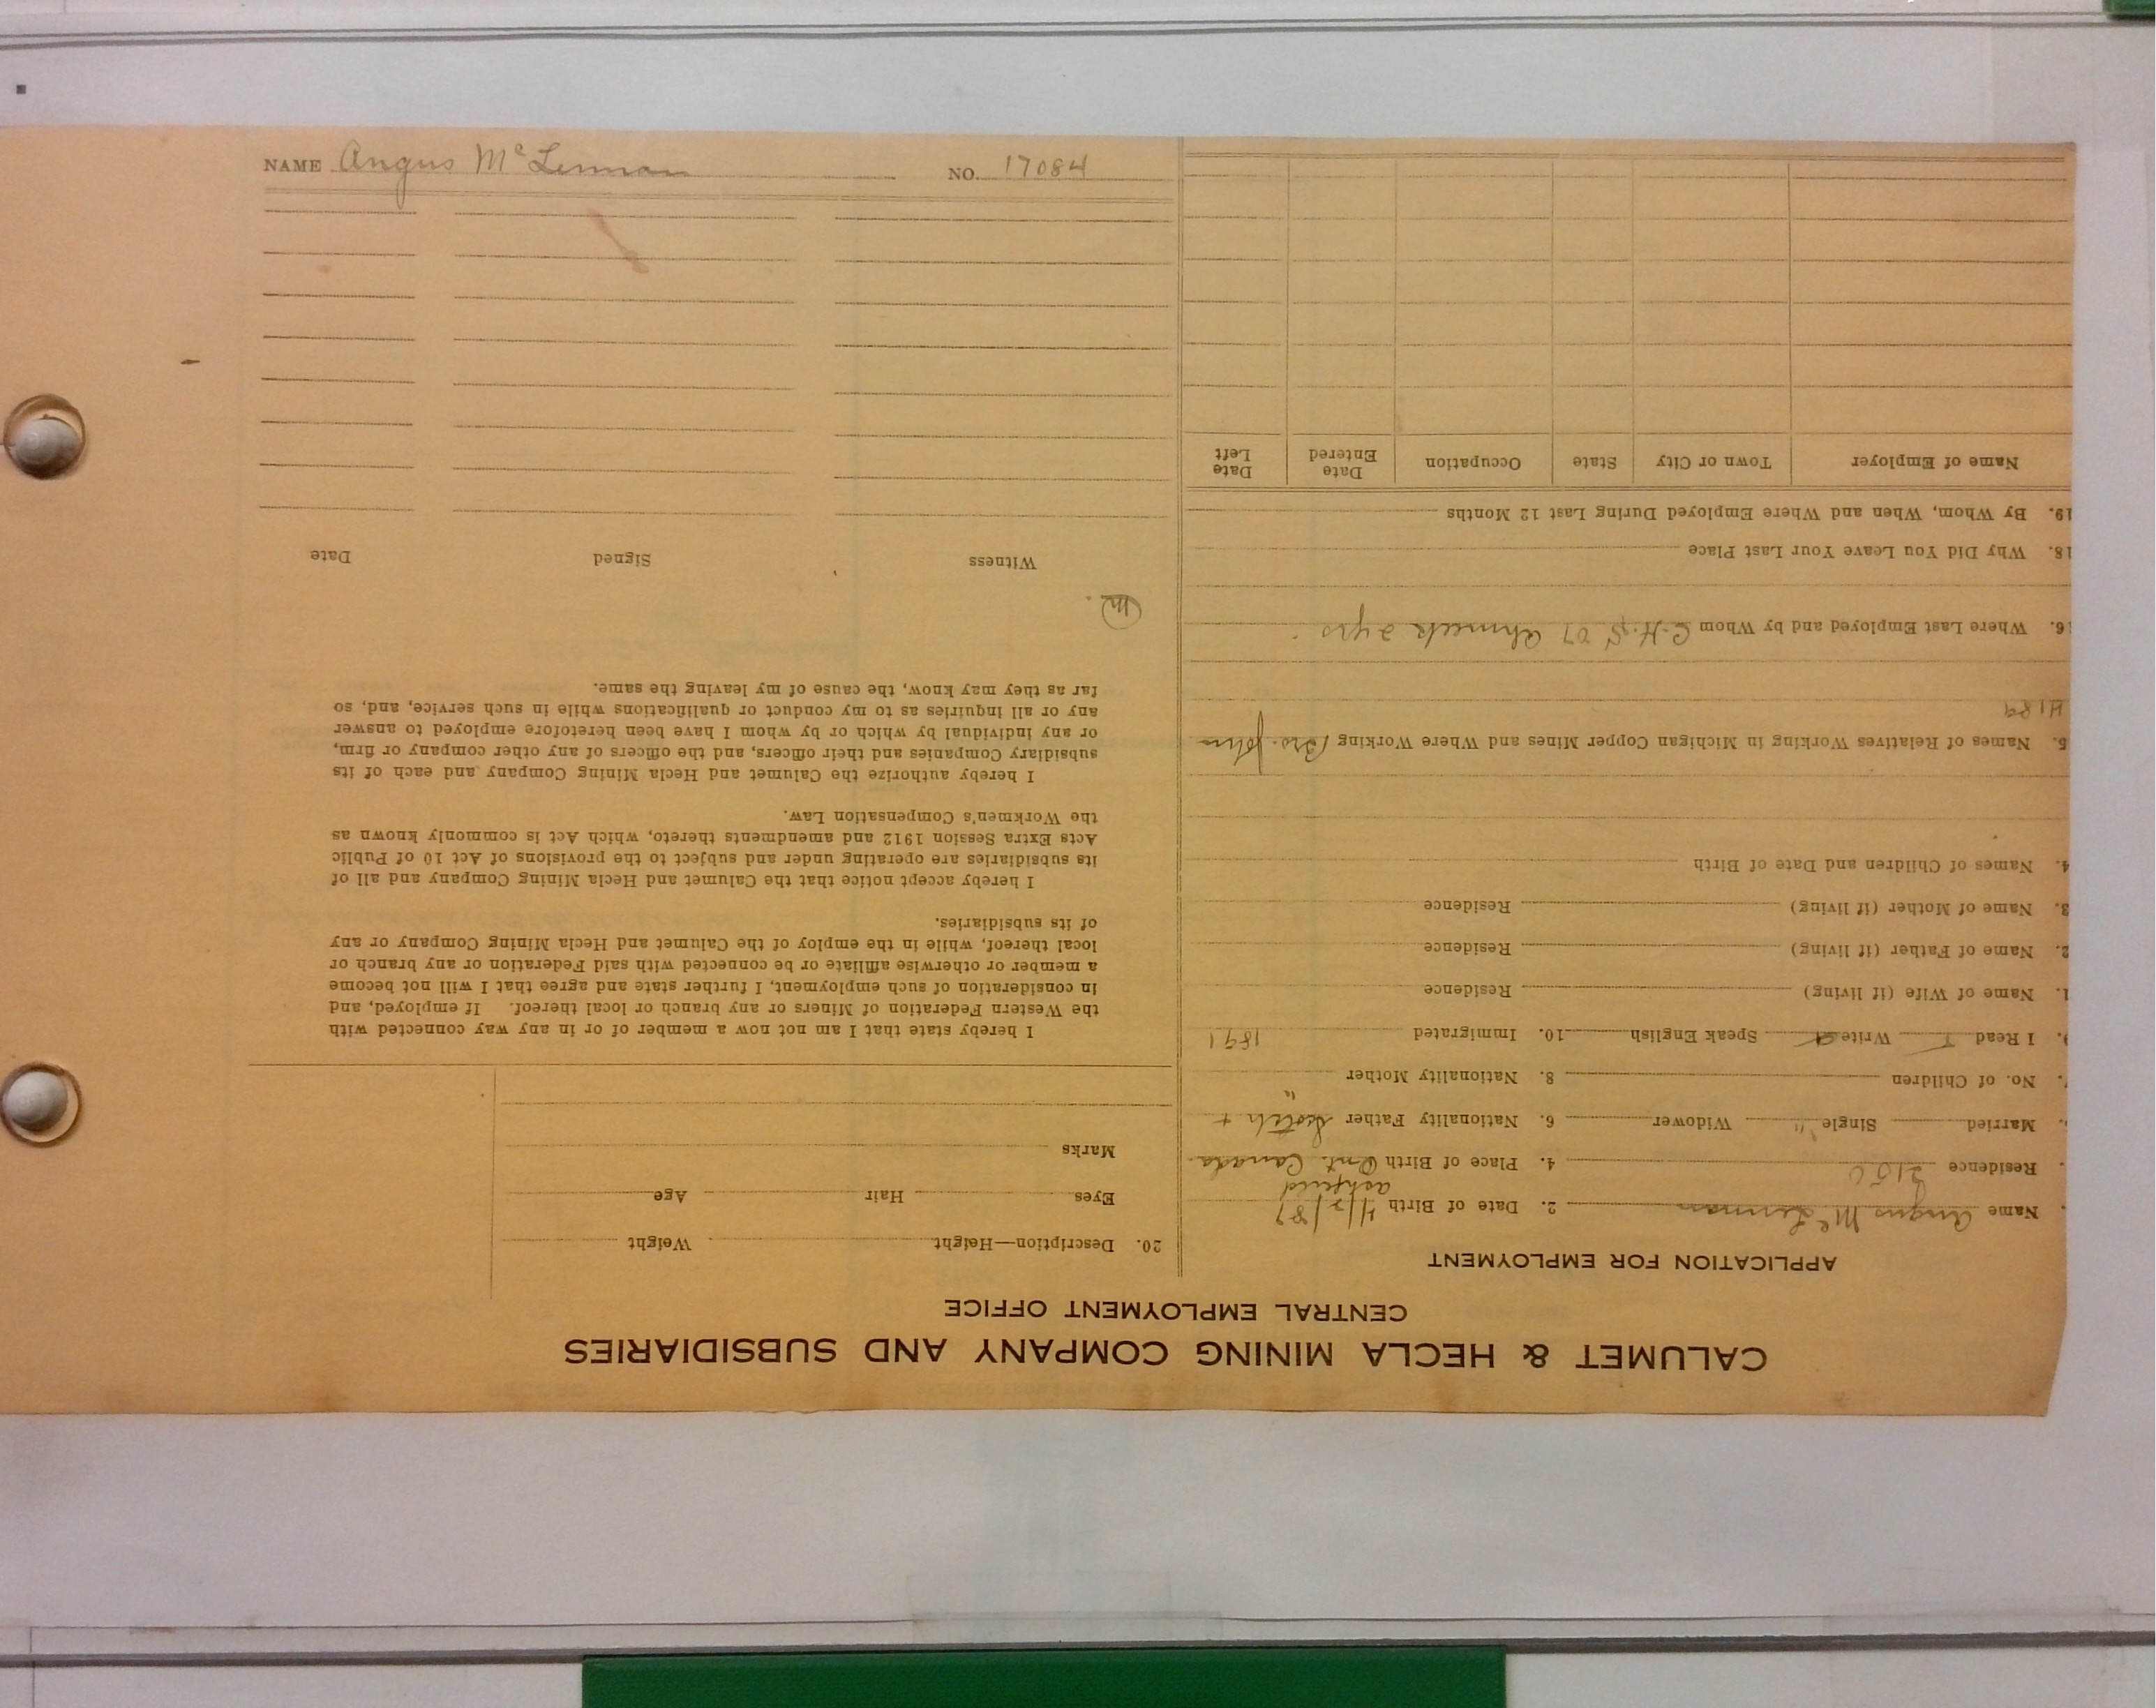 NAME Angus McLennan NO. 17084
CALUMET & HECLA MINING COMPANY AND SUBSIDIARIES
CENTRAL EMPLOYMENT OFFICE
APPLICATION FOR EMPLOYMENT
. Name Angus McLennan 2. Date of Birth 4/2/87
Ashfield
. Residence 2150 4. Place of Birth Ont. Canada
. Married Single " Widower 6. Nationality Father Scotch +
"
. No. of Children 8. Nationality Mother
9. I Read Write Speak English 10. Immigrated 1891
1. Name of Wife (if living) Residence
2. Name of Father (if living) Residence
3. Name of Mother (if living) Residence
4. Names of Children and Date of Birth
5. Names of Relatives Working in Michigan Copper Mines and Where Working Bro. John
H189
6. Where Last Employed and by Whom C.H.S. 07 Ahmeek 2 yrs
18. Why Did You Leave Your Last Place
19. By Whom, When and Where Employed During Last 12 Months
Name of Employer Town or City State Occupation Date Entered Date Left
20. Description—Height Weight
Eyes Hair Age
Marks
I hereby state that I am not now a member of or in any way connected with
the Western Federation of Miners or any branch or local thereof. If employed, and
in consideration of such employment, I further state and agree that I will not become
a member or otherwise affiliate or be connected with said Federation or any branch or
local thereof, while in the employ of the Calumet and Hecla Mining Company or any
of its subsidiaries.
I hereby accept notice that the Calumet and Hecla Mining Company and all of
its subsidiaries are operating under and subject to the provisions of Act 10 of Public
Acts Extra Session 1912 and amendments thereto, which Act is commonly known as
the Workmen's Compensation Law.
I hereby authorize the Calumet and Hecla Mining Company and each of its
subsidiary Companies and their officers, and the officers of any other company or firm,
or any individual by which or by whom I have been heretofore employed to answer
any or all inquiries as to my conduct or qualifications while in such service, and, so
far as they may know, the cause of my leaving the same.
m.
Witness Signed Date